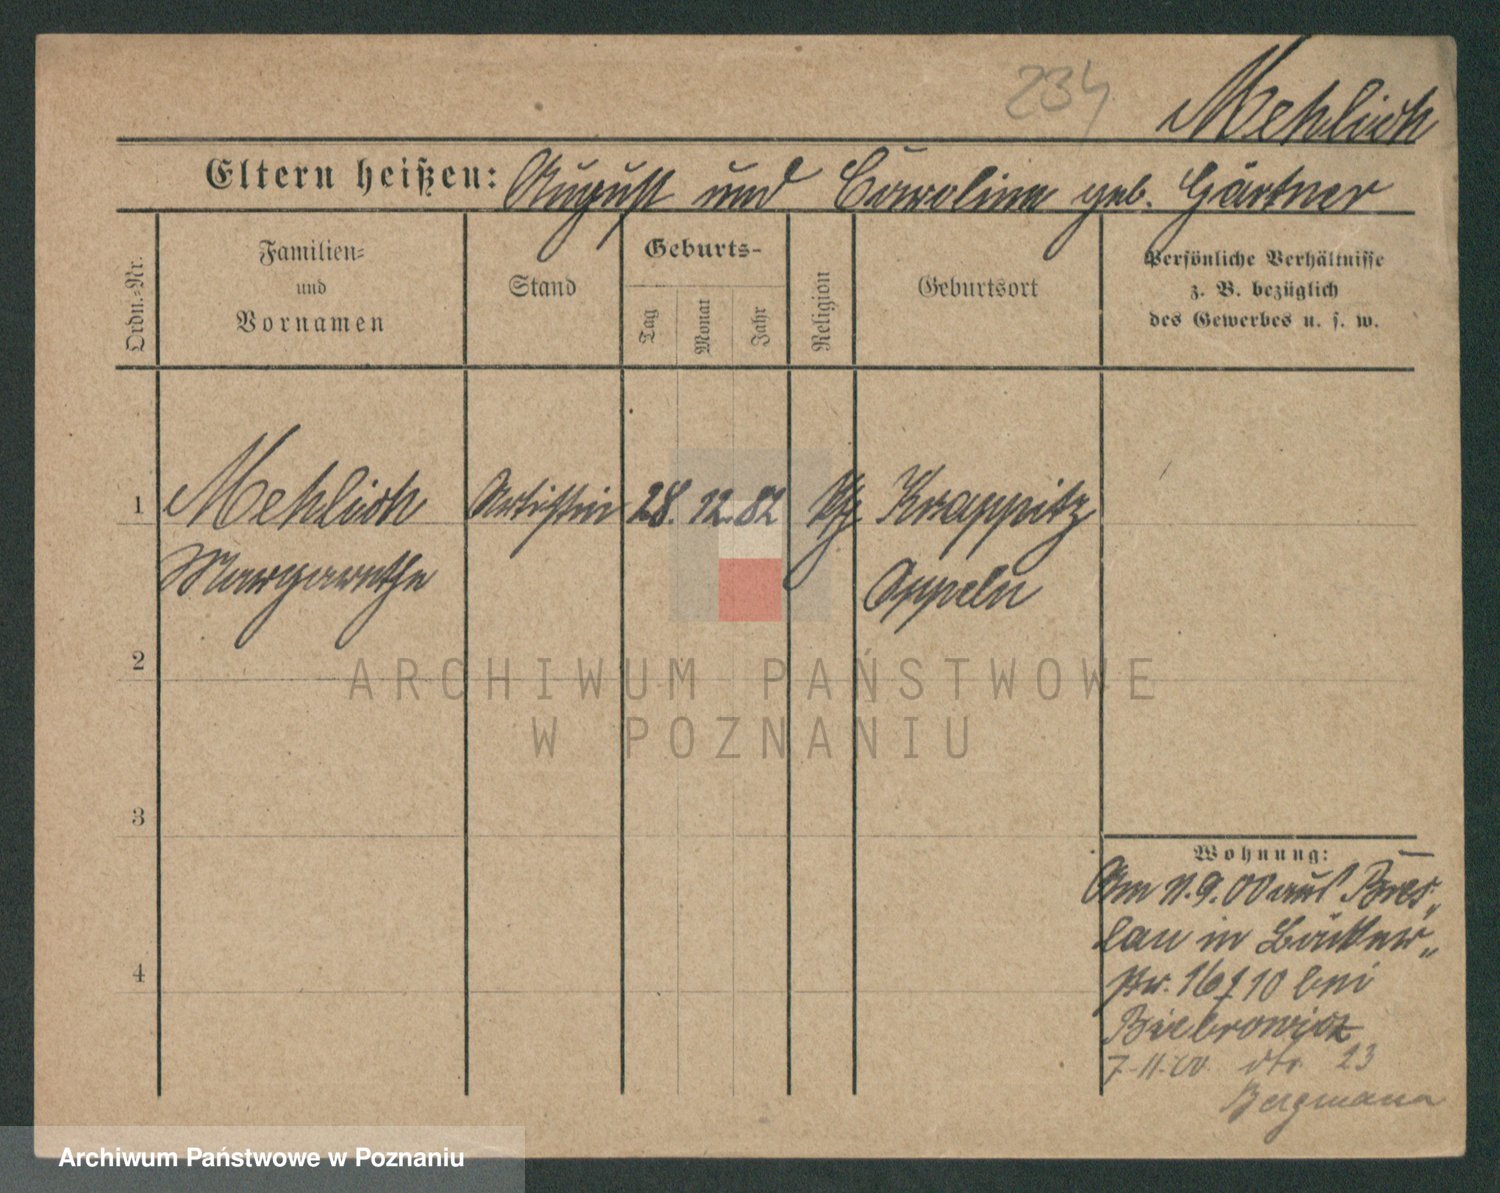 234
Mehlich
Eltern heißen: August und Caroline geb. Gärtner
Ordn.-Nr.
Familien-
und
Vornamen
Stand
Geburts-
Tag
Monat
Jahr
Religion
Geburtsort
Persönliche Verhältnisse
z. B. bezüglich
des Gewerbes u. s. w.
1 Mehlich Artistin 28. 12. 82 Krappitz
Margarethe Oppeln
2
ARCHIWUM PAŃSTWOWE
W POZNANIU
3
4
Wohnung:
Am 11.9.00 aus Bres„
lau in Bäcker„
str. 16/10 bei
7.11.00. dto. 23
Bergmann
Archiwum Państwowe w Poznaniu